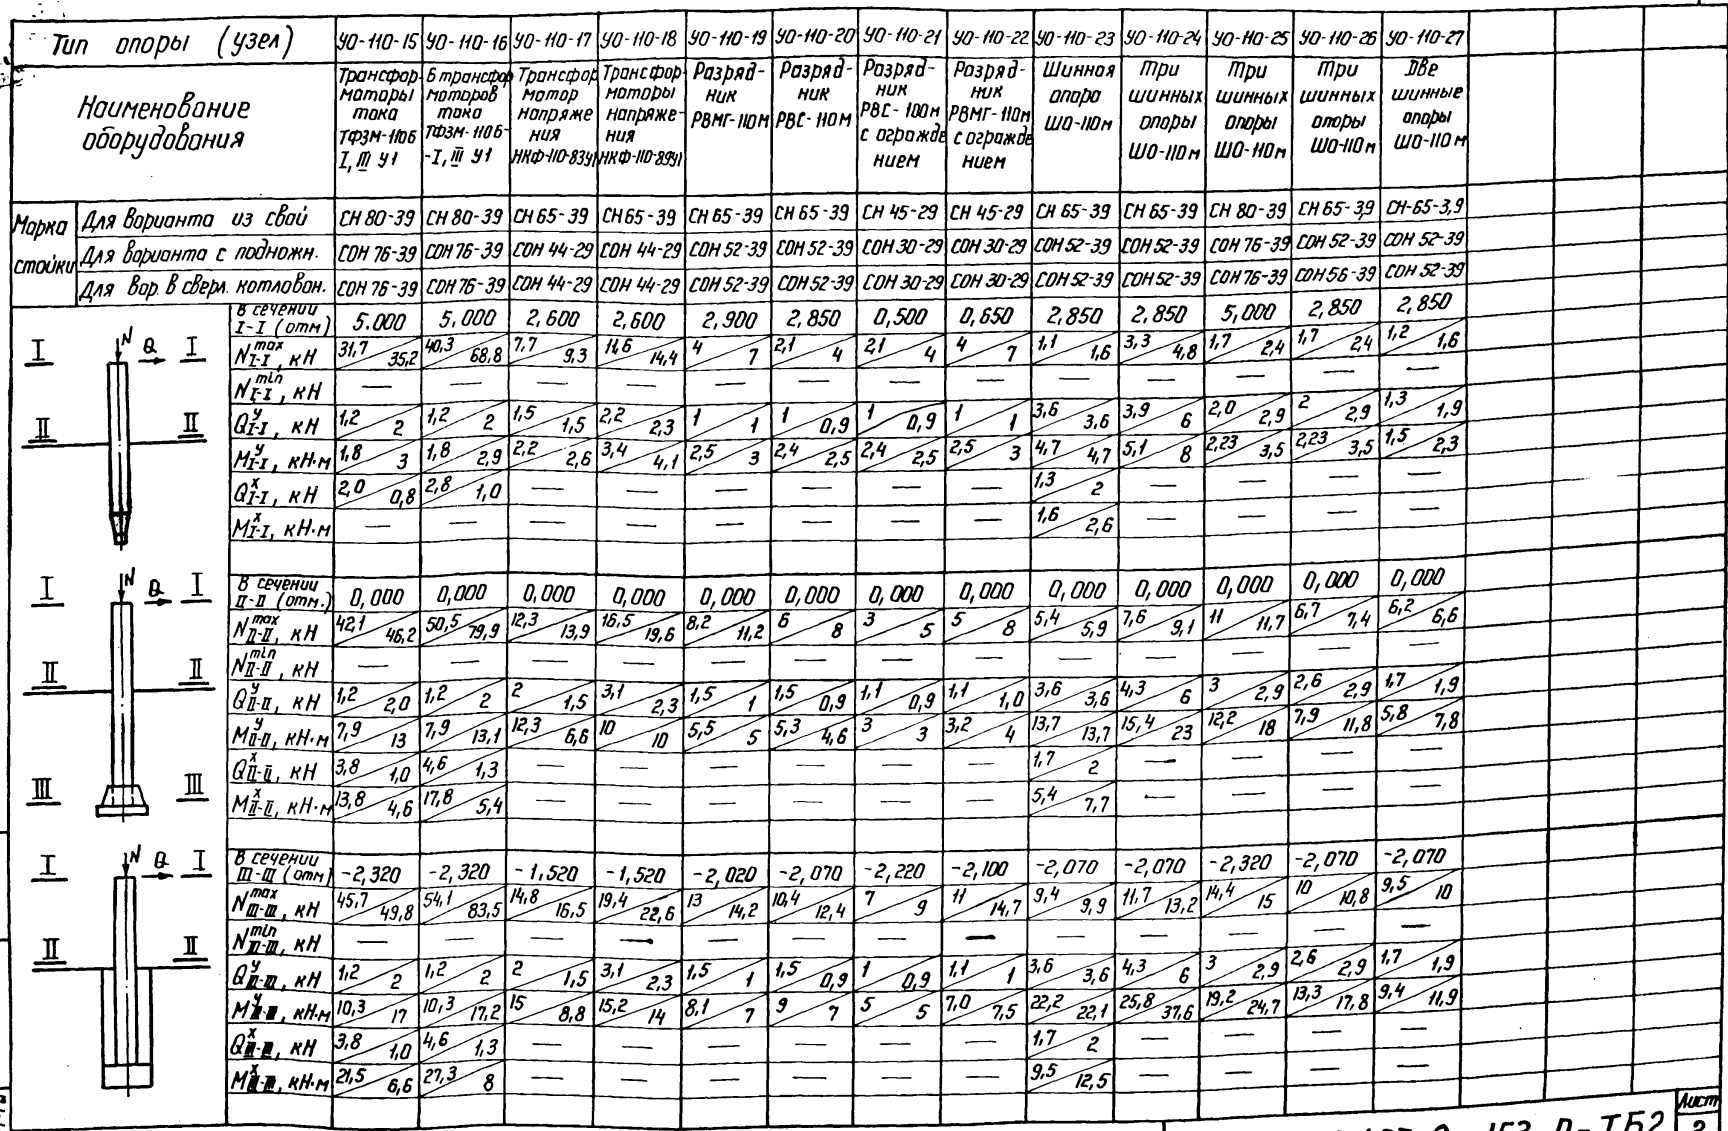 Тип опоры (узел) УО-110-15 УО-110-16 УО-110-17 УО-110-18 УО-110-19 УО-110-20 УО-110-21 УО-110-22 УО-110-23 УО-110-24 УО-110-25 УО-110-26 УО-110-27
Наименование
оборудования
Трансфор-
маторы
тока
ТФЗМ-110Б
I, III У1
6 трансфор
маторов
тока
ТФЗМ-110Б-
-I, III У1
Трансфор
матор
напряже
ния
НКФ-110-83У1
Трансфор-
маторы
напряже-
ния
НКФ-110-83У1
Разряд-
ник
РВМГ-110м
Разряд-
ник
РВС-110м
Разряд-
ник
РВС-100м
с огражде
нием
Разряд-
ник
РВМГ-110м
с огражде
нием
Шинная
опора
ШО-110м
Три
шинных
опоры
ШО-110м
Три
шинных
опоры
ШО-110м
Три
шинных
опоры
ШО-110м
Две
шинные
опоры
ШО-110м
Марка
стойки
Для варианта из свай СН 80-39 СН 80-39 СН 65-39 СН 65-39 СН 65-39 СН 65-39 СН 45-29 СН 45-29 СН 65-39 СН 65-39 СН 80-39 СН 65-3,9 СН-65-3,9
Для варианта с подножн. СОН 76-39 СОН 76-39 СОН 44-29 СОН 44-29 СОН 52-39 СОН 52-39 СОН 30-29 СОН 30-29 СОН 52-39 СОН 52-39 СОН 76-39 СОН 52-39 СОН 52-39
Для вар. в сверл. котлован. СОН 76-39 СОН 76-39 СОН 44-29 СОН 44-29 СОН 52-39 СОН 52-39 СОН 30-29 СОН 30-29 СОН 52-39 СОН 52-39 СОН 76-39 СОН 56-39 СОН 52-39
N Q I I
II II
В сечении
I-I (отм) 5.000 5,000 2,600 2,600 2,900 2,850 0,500 0,650 2,850 2,850 5,000 2,850 2,850
N max I-I, кН 31,7/35,2 40,3/68,8 7,7/9,3 11,6/14,4 4/7 2,1/4 2,1/4 4/7 1,1/1,6 3,3/4,8 1,7/2,4 1,7/2,4 1,2/1,6
N min I-I, кН — — — — — — — — — — — — —
Q у I-I, кН 1,2/2 1,2/2 1,5/1,5 2,2/2,3 1/1 1/0,9 1/0,9 1/1 3,6/3,6 3,9/6 2,0/2,9 2/2,9 1,3/1,9
M у I-I, кН·м 1,8/3 1,8/2,9 2,2/2,6 3,4/4,1 2,5/3 2,4/2,5 2,4/2,5 2,5/3 4,7/4,7 5,1/8 2,23/3,5 2,23/3,5 1,5/2,3
Q х I-I, кН 2,0/0,8 2,8/1,0 — — — — — — 1,3/2 — — — —
M х I-I, кН·м — — — — — — — — 1,6/2,6 — — — —
N Q I I
II II
III III
В сечении
II-II (отм.) 0,000 0,000 0,000 0,000 0,000 0,000 0,000 0,000 0,000 0,000 0,000 0,000 0,000
N max II-II, кН 42,1/46,2 50,5/79,9 12,3/13,9 16,5/19,6 8,2/11,2 6/8 3/5 5/8 5,4/5,9 7,6/9,1 11/11,7 6,7/7,4 6,2/6,6
N min II-II, кН — — — — — — — — — — — — —
Q у II-II, кН 1,2/2,0 1,2/2 2/1,5 3,1/2,3 1,5/1 1,5/0,9 1,1/0,9 1,1/1,0 3,6/3,6 4,3/6 3/2,9 2,6/2,9 1,7/1,9
M у II-II, кН·м 7,9/13 7,9/13,1 12,3/6,6 10/10 5,5/5 5,3/4,6 3/3 3,2/4 13,7/13,7 15,4/23 12,2/18 7,9/11,8 5,8/7,8
Q х II-II, кН 3,8/1,0 4,6/1,3 — — — — — — 1,7/2 — — — —
M х II-II, кН·м 13,8/4,6 17,8/5,4 — — — — — — 5,4/7,7 — — — —
N Q I I
II II
В сечении
III-III (отм) -2,320 -2,320 -1,520 -1,520 -2,020 -2,070 -2,220 -2,100 -2,070 -2,070 -2,320 -2,070 -2,070
N max III-III, кН 45,7/49,8 54,1/83,5 14,8/16,5 19,4/22,6 13/14,2 10,4/12,4 7/9 11/14,7 9,4/9,9 11,7/13,2 14,4/15 10/10,8 9,5/10
N min III-III, кН — — — — — — — — — — — — —
Q у III-III, кН 1,2/2 1,2/2 2/1,5 3,1/2,3 1,5/1 1,5/0,9 1/0,9 1,1/1 3,6/3,6 4,3/6 3/2,9 2,6/2,9 1,7/1,9
M у III-III, кН·м 10,3/17 10,3/17,2 15/8,8 15,2/14 8,1/7 9/7 5/5 7,0/7,5 22,2/22,1 25,8/37,6 19,2/24,7 13,3/17,8 9,4/11,9
Q х III-III, кН 3,8/1,0 4,6/1,3 — — — — — — 1,7/2 — — — —
M х III-III, кН·м 21,5/6,6 27,3/8 — — — — — — 9,5/12,5 — — — —
Лист
2